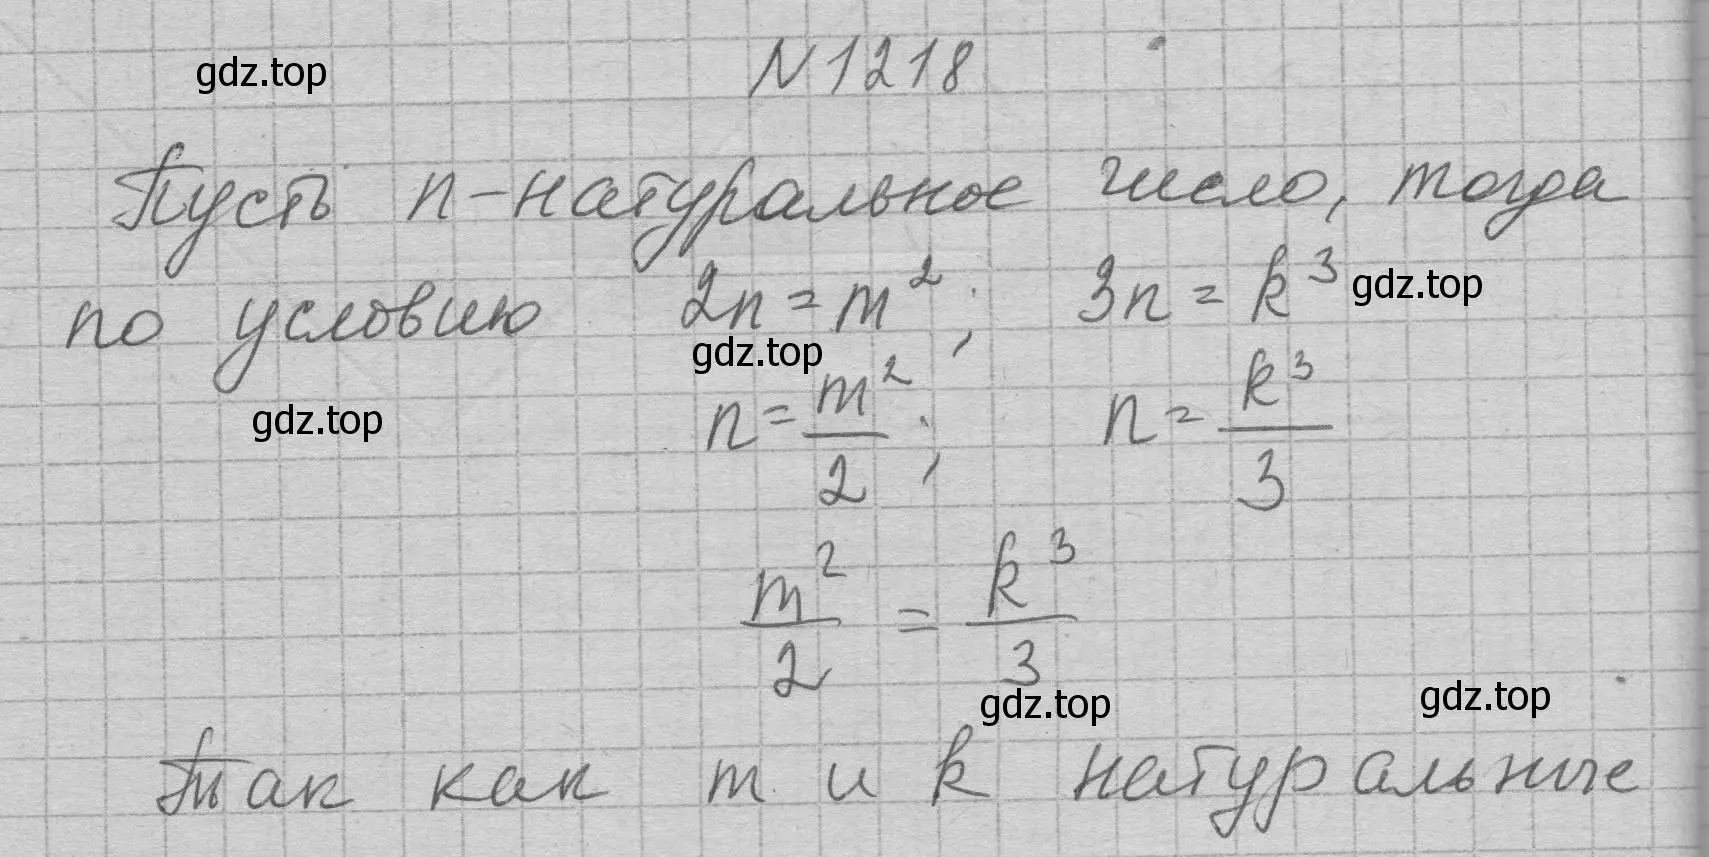 gdz.top
N1218
Пусть n-натуральное число, тогда
по условию 2n = m²; 3n = k³ gdz.top
gdz.top
gdz.top
n = m²/2; n = k³/3
m²/2 = k³/3
gdz.top
gdz.top
Так как m и k натуральные